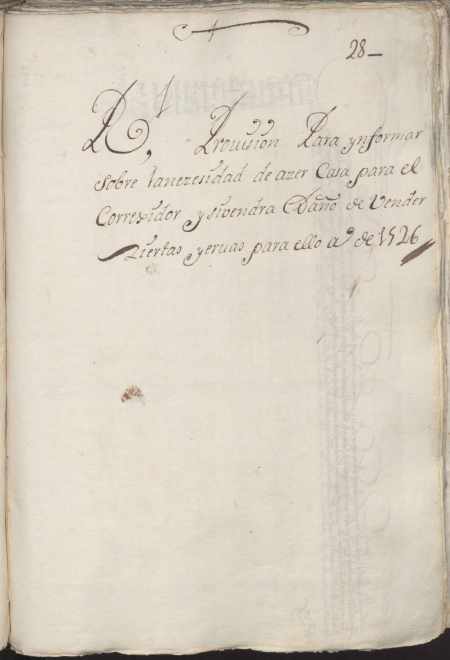 28_
Rl, Provision Para ynformar
sobre lanezesidad de azer Casa para el
Correxidor y sivendra Daño de vender
Ziertas yeruas para ello aº de 1526